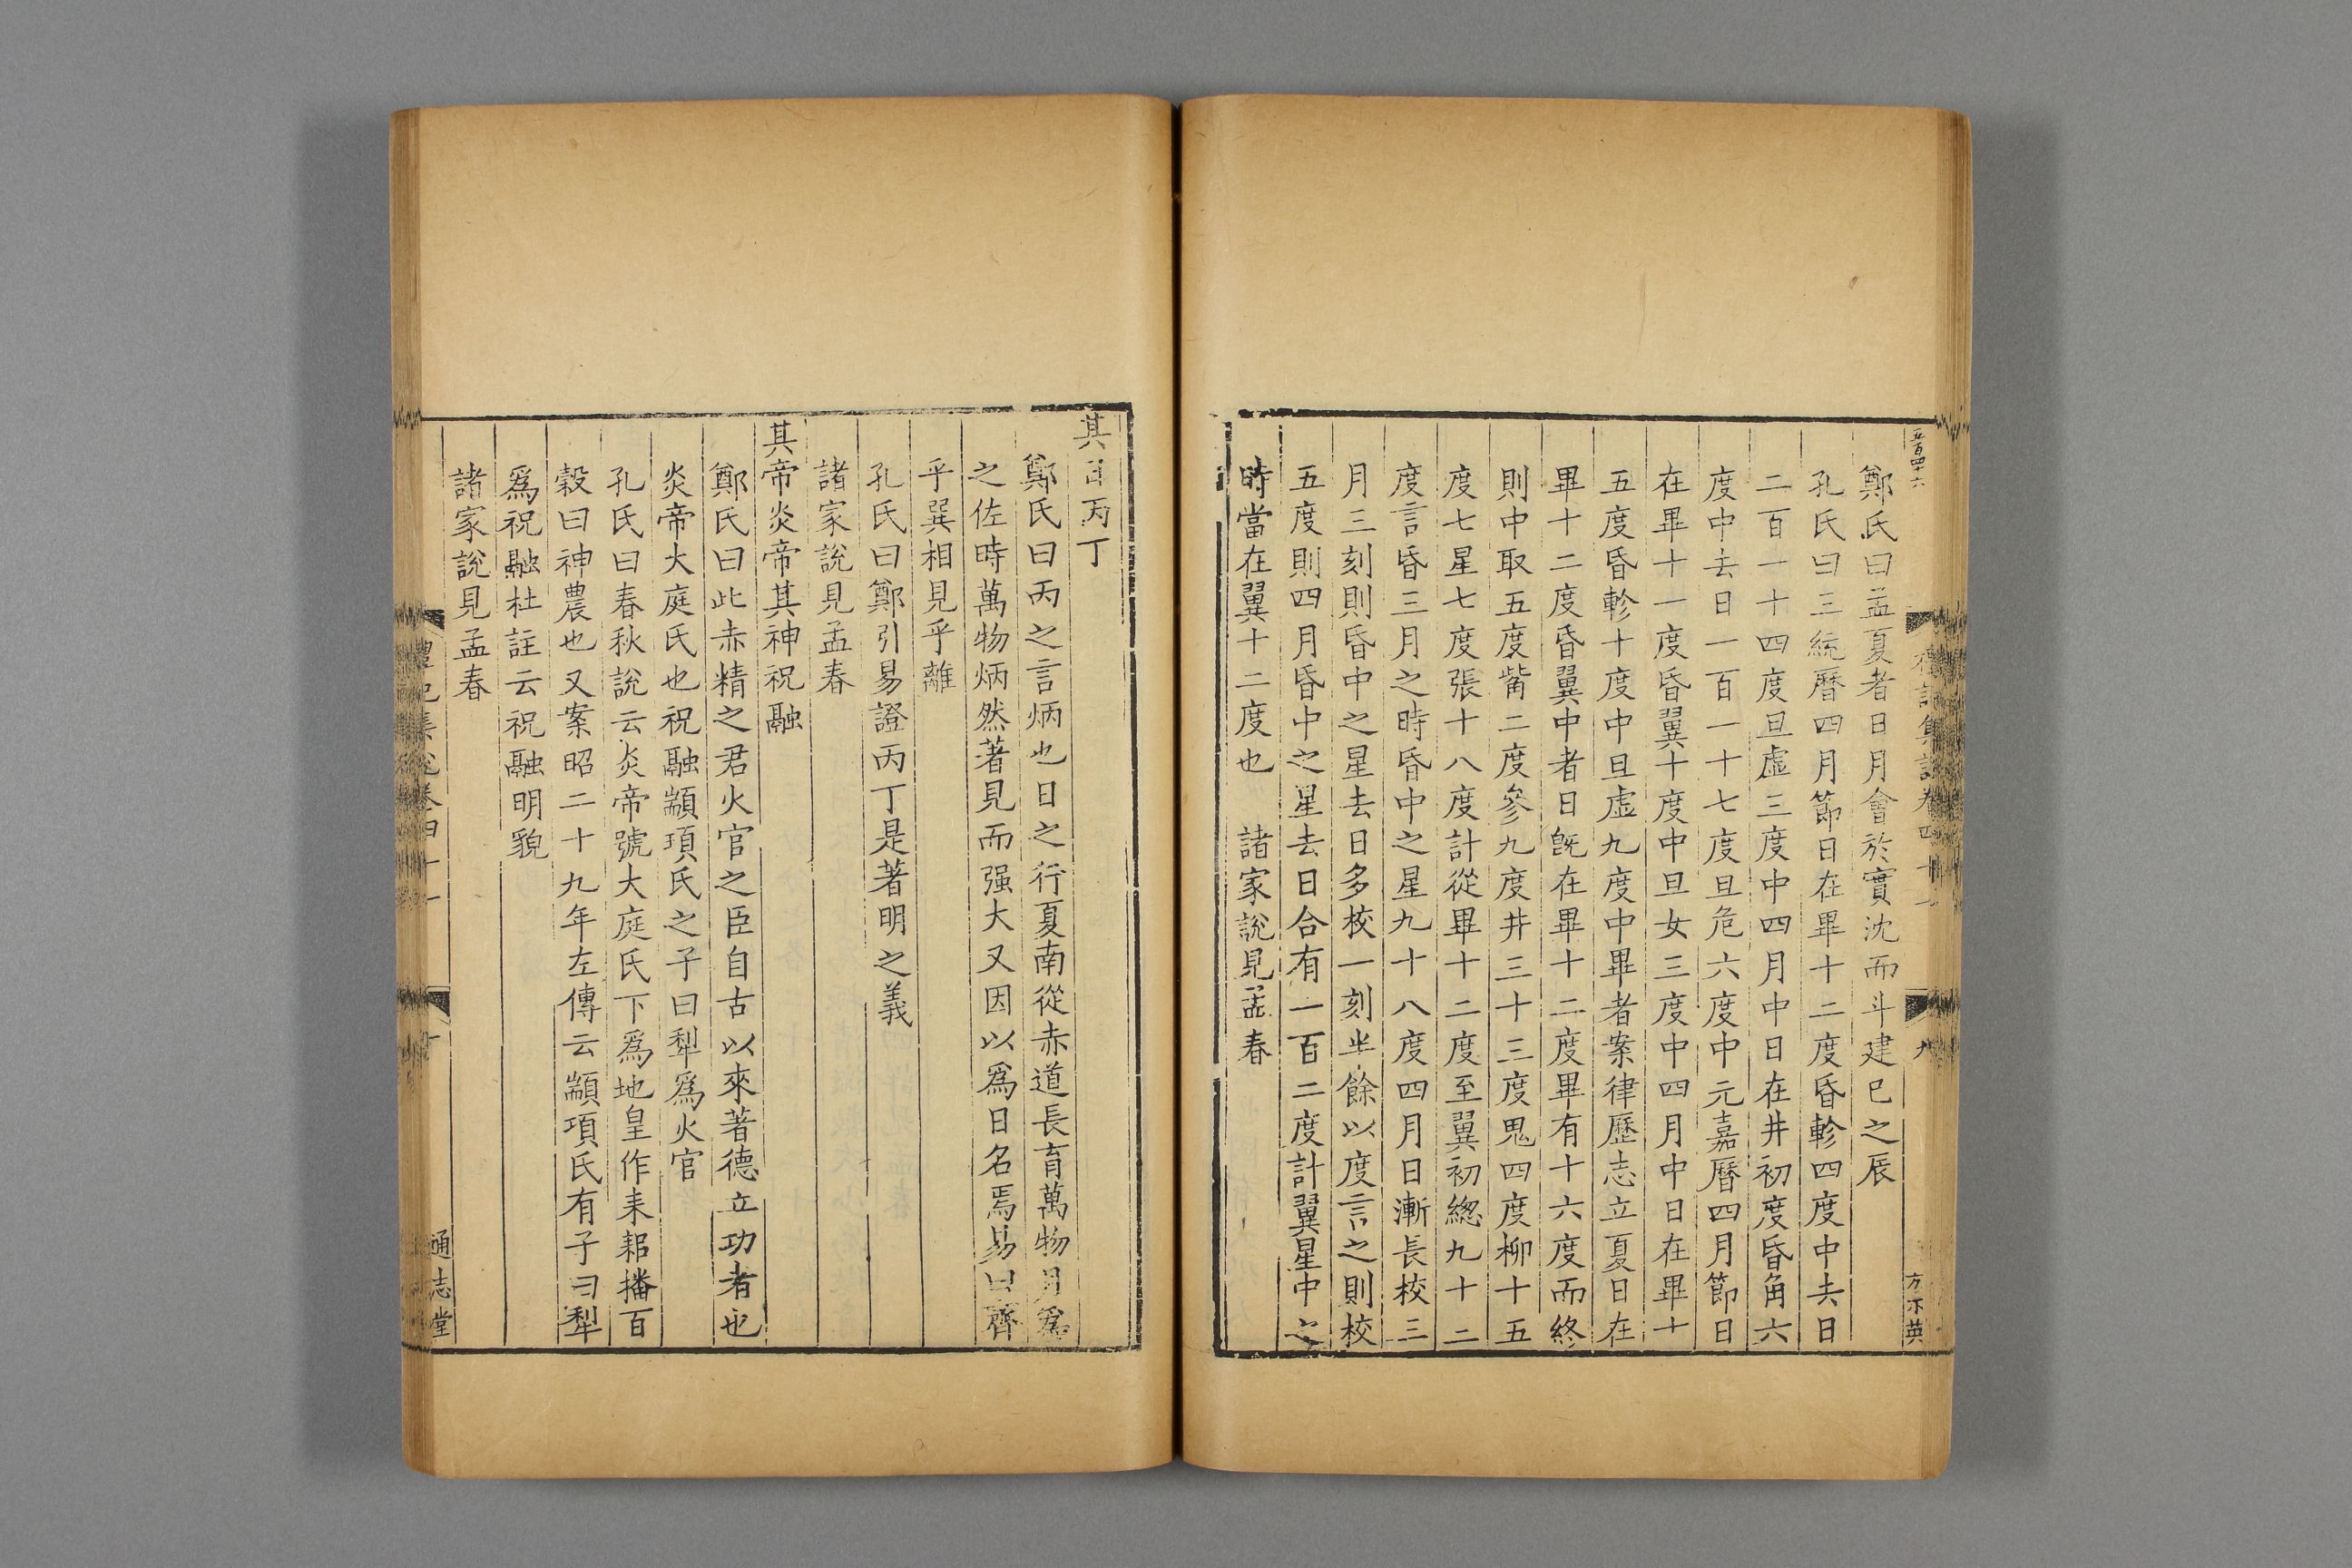 鄭氏曰孟夏者日月會於實沈而斗建巳之辰
孔氏曰三統曆四月節日在畢十二度昏軫四度中去日
二百一十四度旦虛三度中四月中日在井初度昏角六
度中去日一百一十七度旦危六度中元嘉曆四月節日
在畢十一度昏翼十度中旦女三度中四月中日在畢十
五度昏軫十度中旦虛九度中畢者案律歷志立夏日在
畢十二度昏翼中者日旣在畢十二度畢有十六度而終
則中取五度觜二度參九度井三十三度鬼四度柳十五
度七星七度張十八度計從畢十二度至翼初總九十二
度言昏三月之時昏中之星九十八度四月日漸長校三
月三刻則昏中之星去日多校一刻半餘以度言之則校
五度則四月昏中之星去日合有一百二度計翼星中之
時當在翼十二度也 諸家說見孟春
禮記集說卷四十一 九 方不英
其日丙丁
鄭氏曰丙之言炳也日之行夏南從赤道長育萬物月爲
之佐時萬物炳然著見而强大又因以爲日名焉易曰齊
乎巽相見乎離
孔氏曰鄭引易證丙丁是著明之義
諸家說見孟春
其帝炎帝其神祝融
鄭氏曰此赤精之君火官之臣自古以來著德立功者也
炎帝大庭氏也祝融顓頊氏之子曰犁爲火官
孔氏曰春秋說云炎帝號大庭氏下爲地皇作耒耜播百
穀曰神農也又案昭二十九年左傳云顓頊氏有子曰犁
爲祝融杜註云祝融明貌
諸家說見孟春
禮記集說卷四十一 十 通志堂